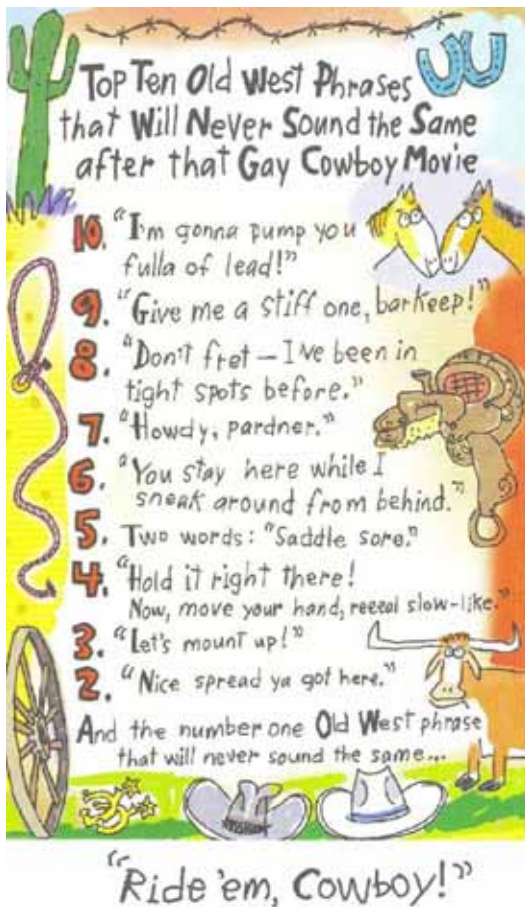 Top Ten Old West Phrases
that Will Never Sound the Same
after that Gay Cowboy Movie
10. "I'm gonna pump you
fulla of lead!"
9. "Give me a stiff one, barkeep!"
8. "Don't fret – I've been in
tight spots before."
7. "Howdy, pardner."
6. "You stay here while I
sneak around from behind."
5. Two words: "Saddle sore."
4. "Hold it right there!
Now, move your hand, reeeal slow-like."
3. "Let's mount up!"
2. "Nice spread ya got here."
And the number one Old West phrase
that will never sound the same...
"Ride 'em, Cowboy!"